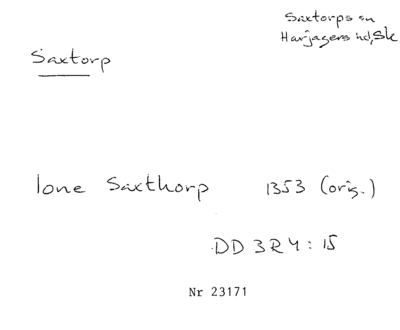 Saxtorps sn
Harjagers hd, Sk
Saxtorp
Ione Saxthorp 1353 (orig.)
DD 3R4: 15
Nr 23171